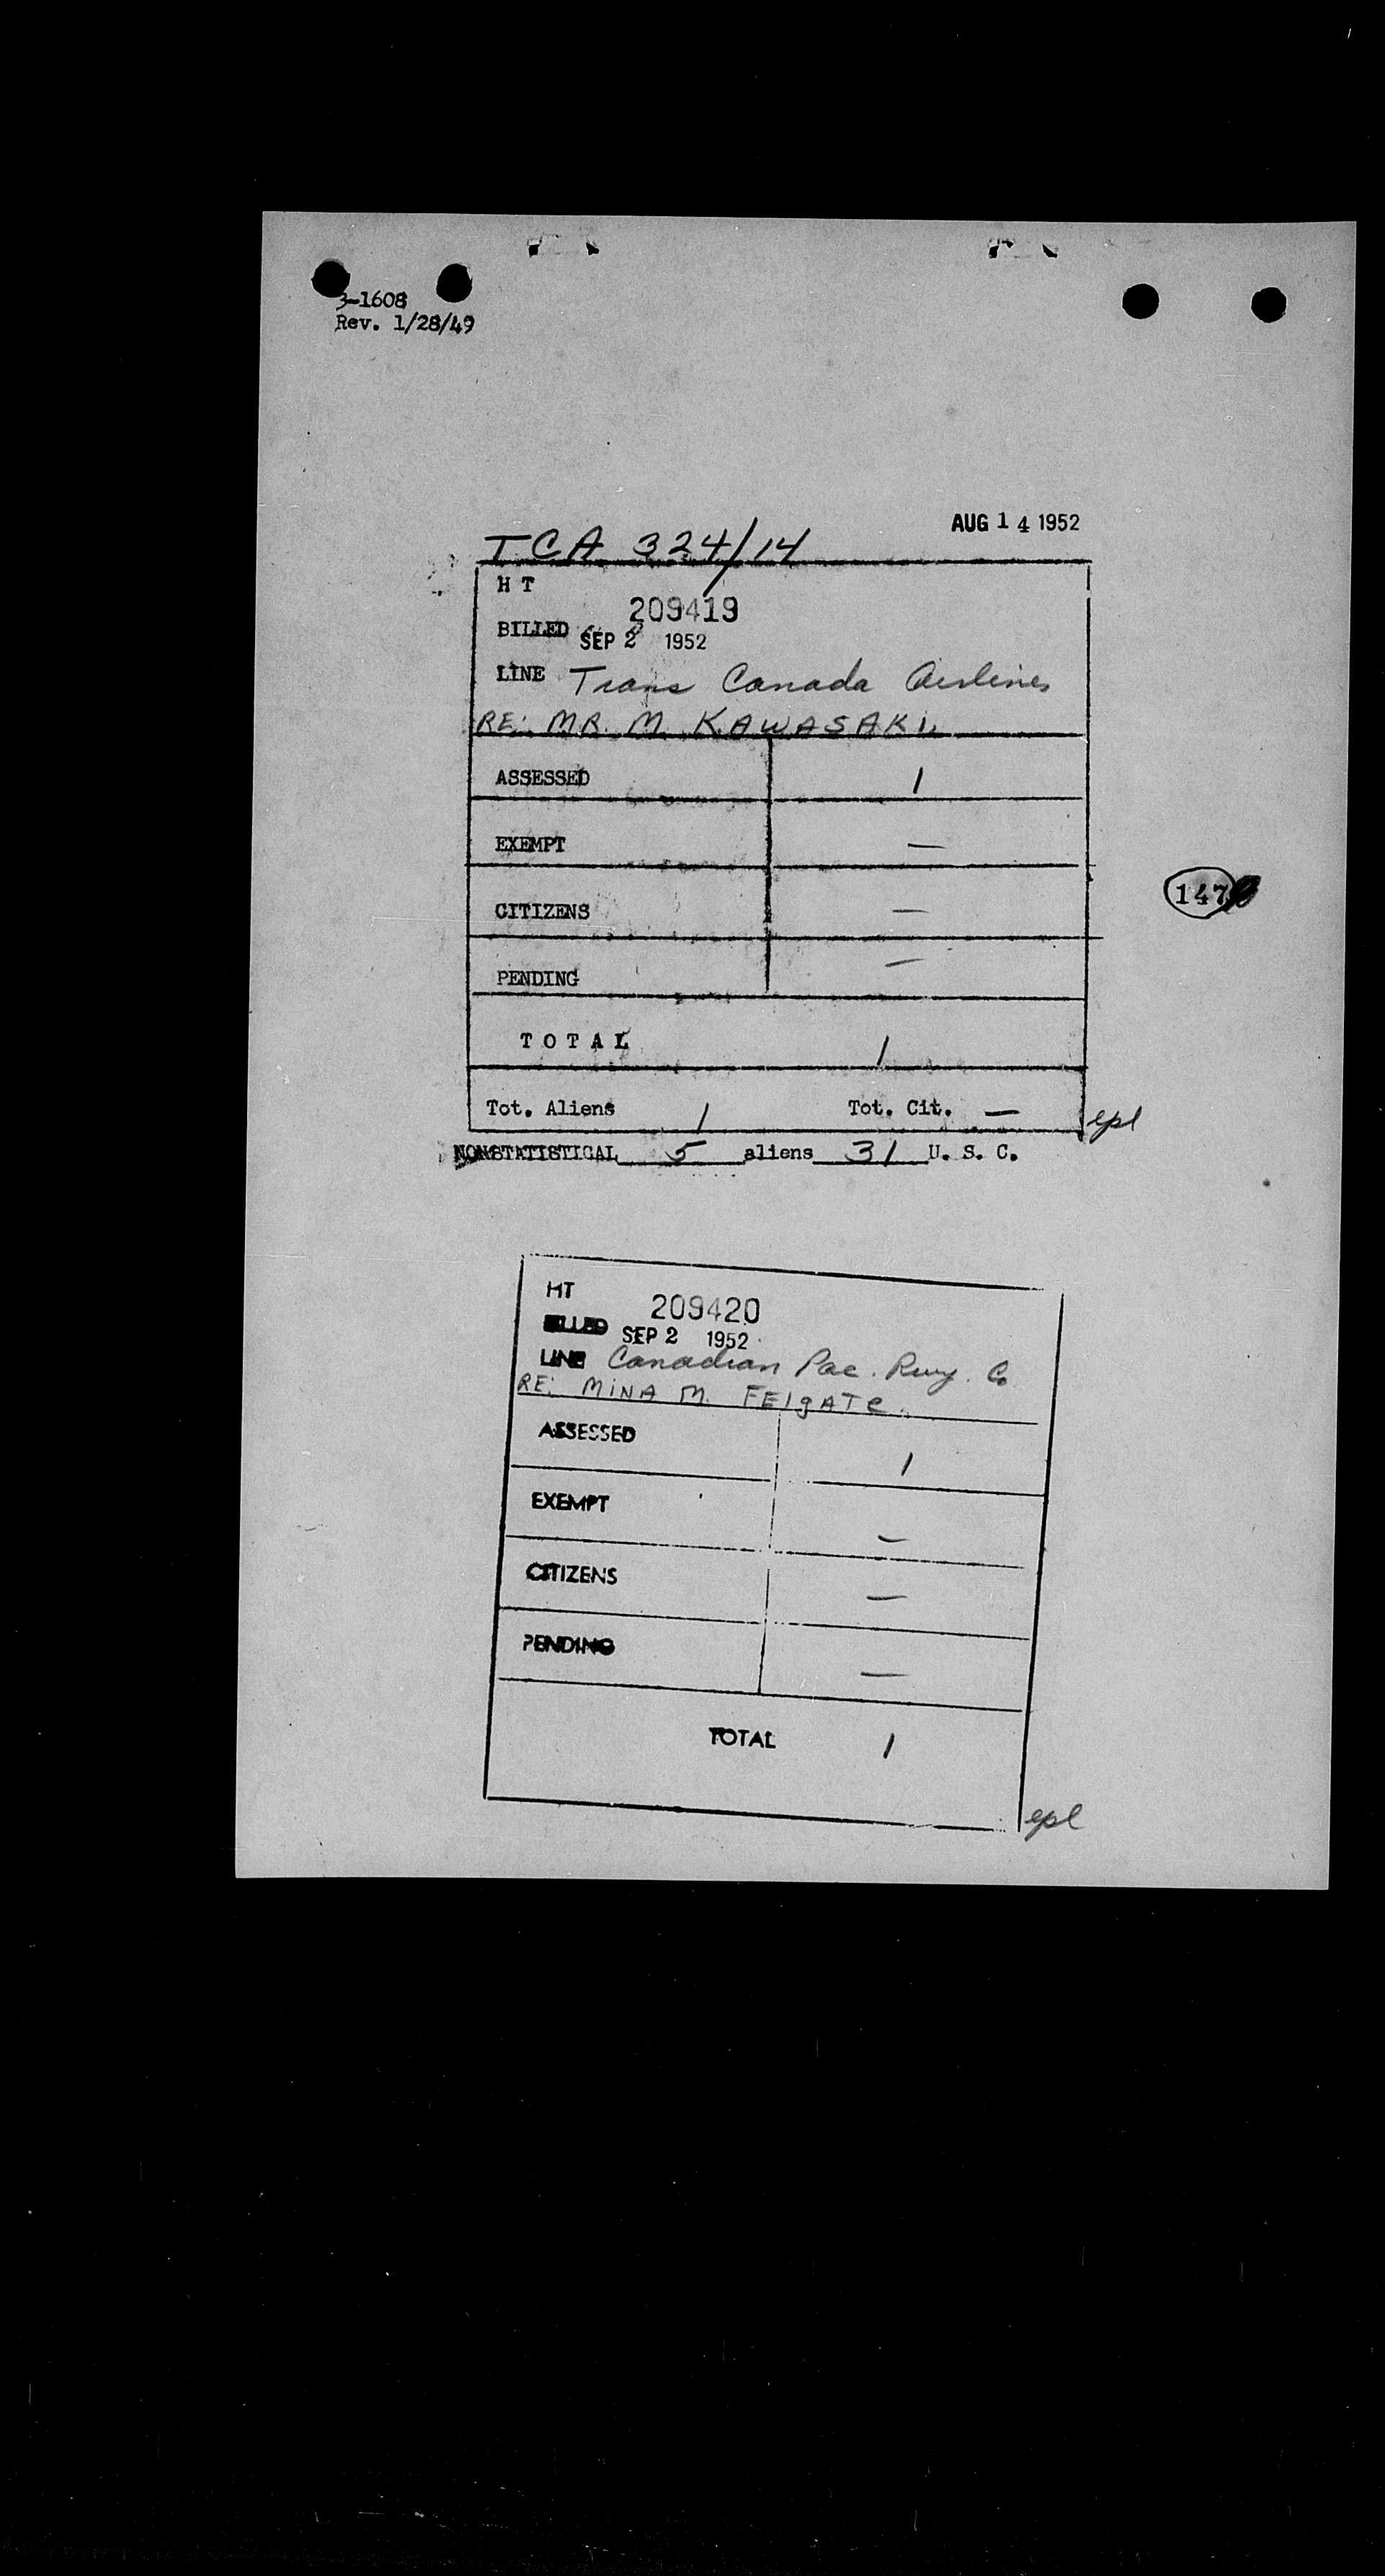 3-1608
Rev. 1/28/49
AUG 14 1952
TCA 324/14
H T
209419
BILLED SEP 2 1952
LINE Trans Canada Airlines
RE: MR. M. KAWASAKI.
ASSESSED 1
EXEMPT —
147
CITIZENS —
PENDING —
TOTAL 1
Tot. Aliens 1 Tot. Cit. — epl
NONSTATISTICAL 5 aliens 31 U. S. C.
HT
209420
BILLED SEP 2 1952
LINE Canadian Pac. Rwy. Co
RE: MINA M. FElgATe.
ASSESSED 1
EXEMPT —
CITIZENS —
PENDING —
TOTAL 1
epl